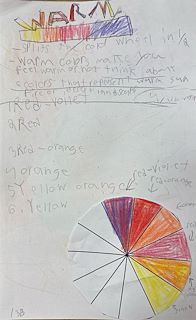 WARM
- Splits the color wheel in 1/2
- Warm colors make you
feel warm or hot think about
colors that represent warm sun
1 Red-violet
2 Red
3 Red-orange
4 orange
5 Yellow orange
6. Yellow
red-violet
red